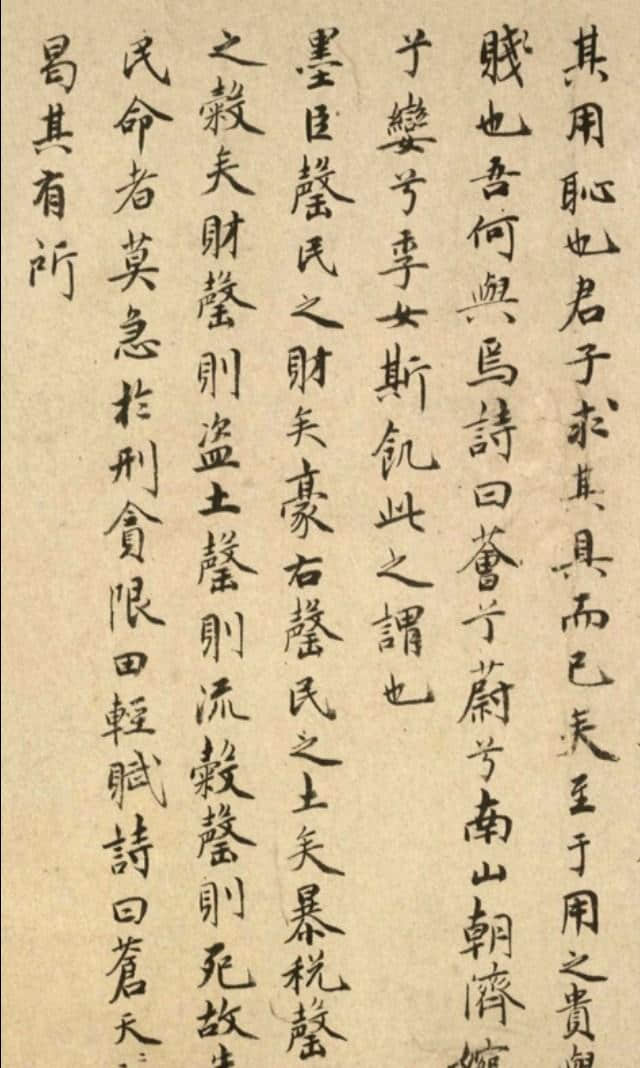 其用恥也君子求其具而已矣至于用之貴與
賤也吾何與焉詩曰薈兮蔚兮南山朝隮婉
兮孌兮季女斯飢此之謂也
墨臣罄民之財矣豪右罄民之土矣暴税罄
之穀矣財罄則盗土罄則流穀罄則死故
民命者莫急於刑貪限田輕賦詩曰蒼天〻
曷其有所